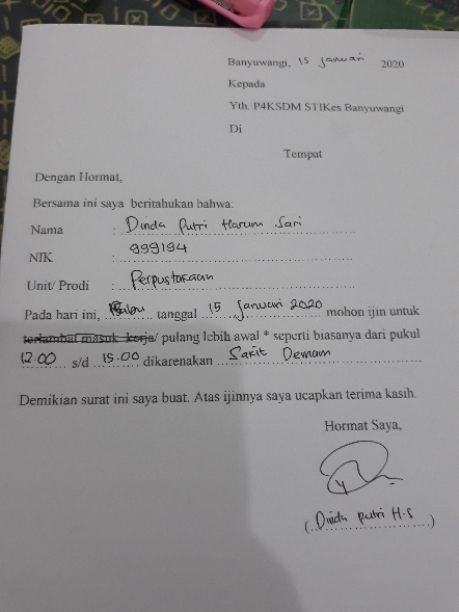 Banyuwangi, 15 Januari 2020
Kepada
Yth. P4KSDM STIKes Banyuwangi
Di
Tempat
Dengan Hormat,
Bersama ini saya beritahukan bahwa:
Nama : Dinda Putri Harum Sari
NIK : 999194
Unit/ Prodi : Perpustakaan
Pada hari ini, Rabu tanggal 15 Januari 2020 mohon ijin untuk
terlambat masuk kerja/ pulang lebih awal * seperti biasanya dari pukul
12.00 s/d 15.00 dikarenakan Sakit Demam
Demikian surat ini saya buat. Atas ijinnya saya ucapkan terima kasih.
Hormat Saya,
(Dinda putri H.S)